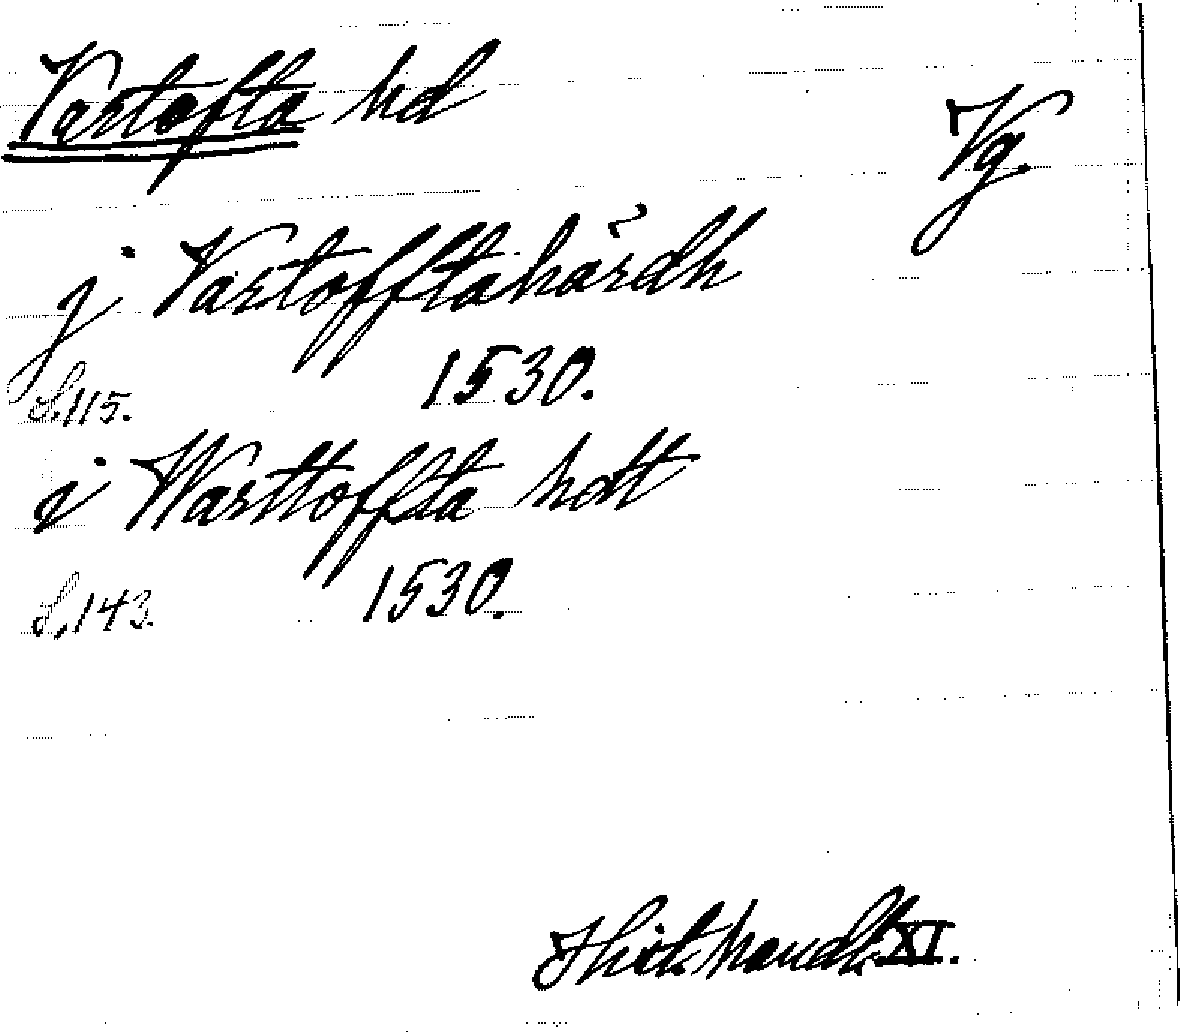 Vartofta hd
Vg.
j Vartofftahärdh
S. 115. 1530.
j Warttoffta hdt
S. 143. 1530.
Hist. handl. XI.